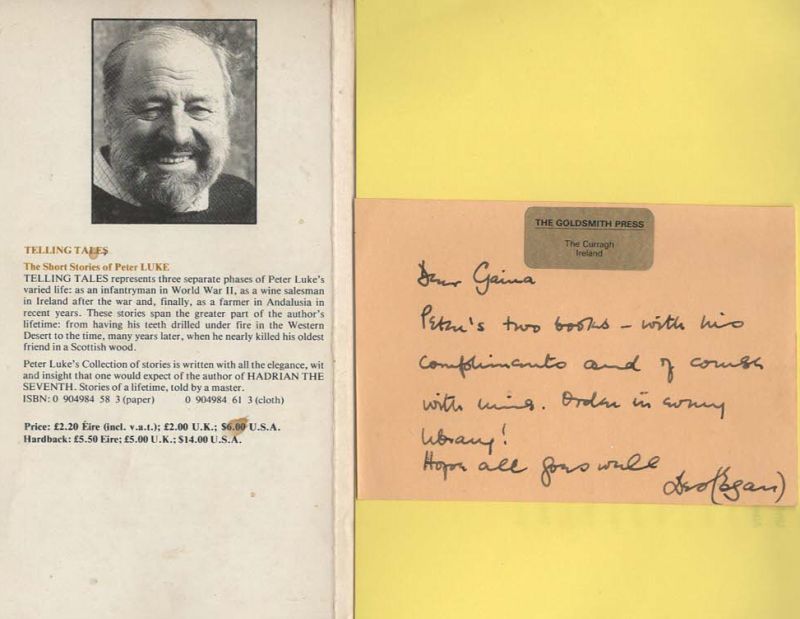 TELLING TALES
The Short Stories of Peter LUKE
TELLING TALES represents three separate phases of Peter Luke's
varied life: as an infantryman in World War II, as a wine salesman
in Ireland after the war and, finally, as a farmer in Andalusia in
recent years. These stories span the greater part of the author's
lifetime: from having his teeth drilled under fire in the Western
Desert to the time, many years later, when he nearly killed his oldest
friend in a Scottish wood.
Peter Luke's Collection of stories is written with all the elegance, wit
and insight that one would expect of the author of HADRIAN THE
SEVENTH. Stories of a lifetime, told by a master.
ISBN: 0 904984 58 3 (paper) 0 904984 61 3 (cloth)
Price: £2.20 Éire (incl. v.a.t.); £2.00 U.K.; $6.00 U.S.A.
Hardback: £5.50 Eire; £5.00 U.K.; $14.00 U.S.A.
THE GOLDSMITH PRESS
The Curragh
Ireland
Dear
Peter's two books – with his
compliments and of course
with mine. Order in every
library!
Hope all goes well
Des (Egan)